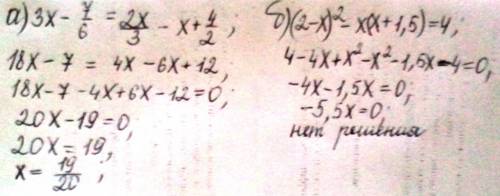 а) 3x - 7/6 = 2x/3 - x + 4/2;
18x - 7 = 4x - 6x + 12;
18x - 7 - 4x + 6x - 12 = 0;
20x - 19 = 0;
20x = 19;
x = 19/20;
б) (2-x)² - x(x + 1,5) = 4;
4 - 4x + x² - x² - 1,5x - 4 = 0;
-4x - 1,5x = 0;
-5,5x = 0;
нет решения